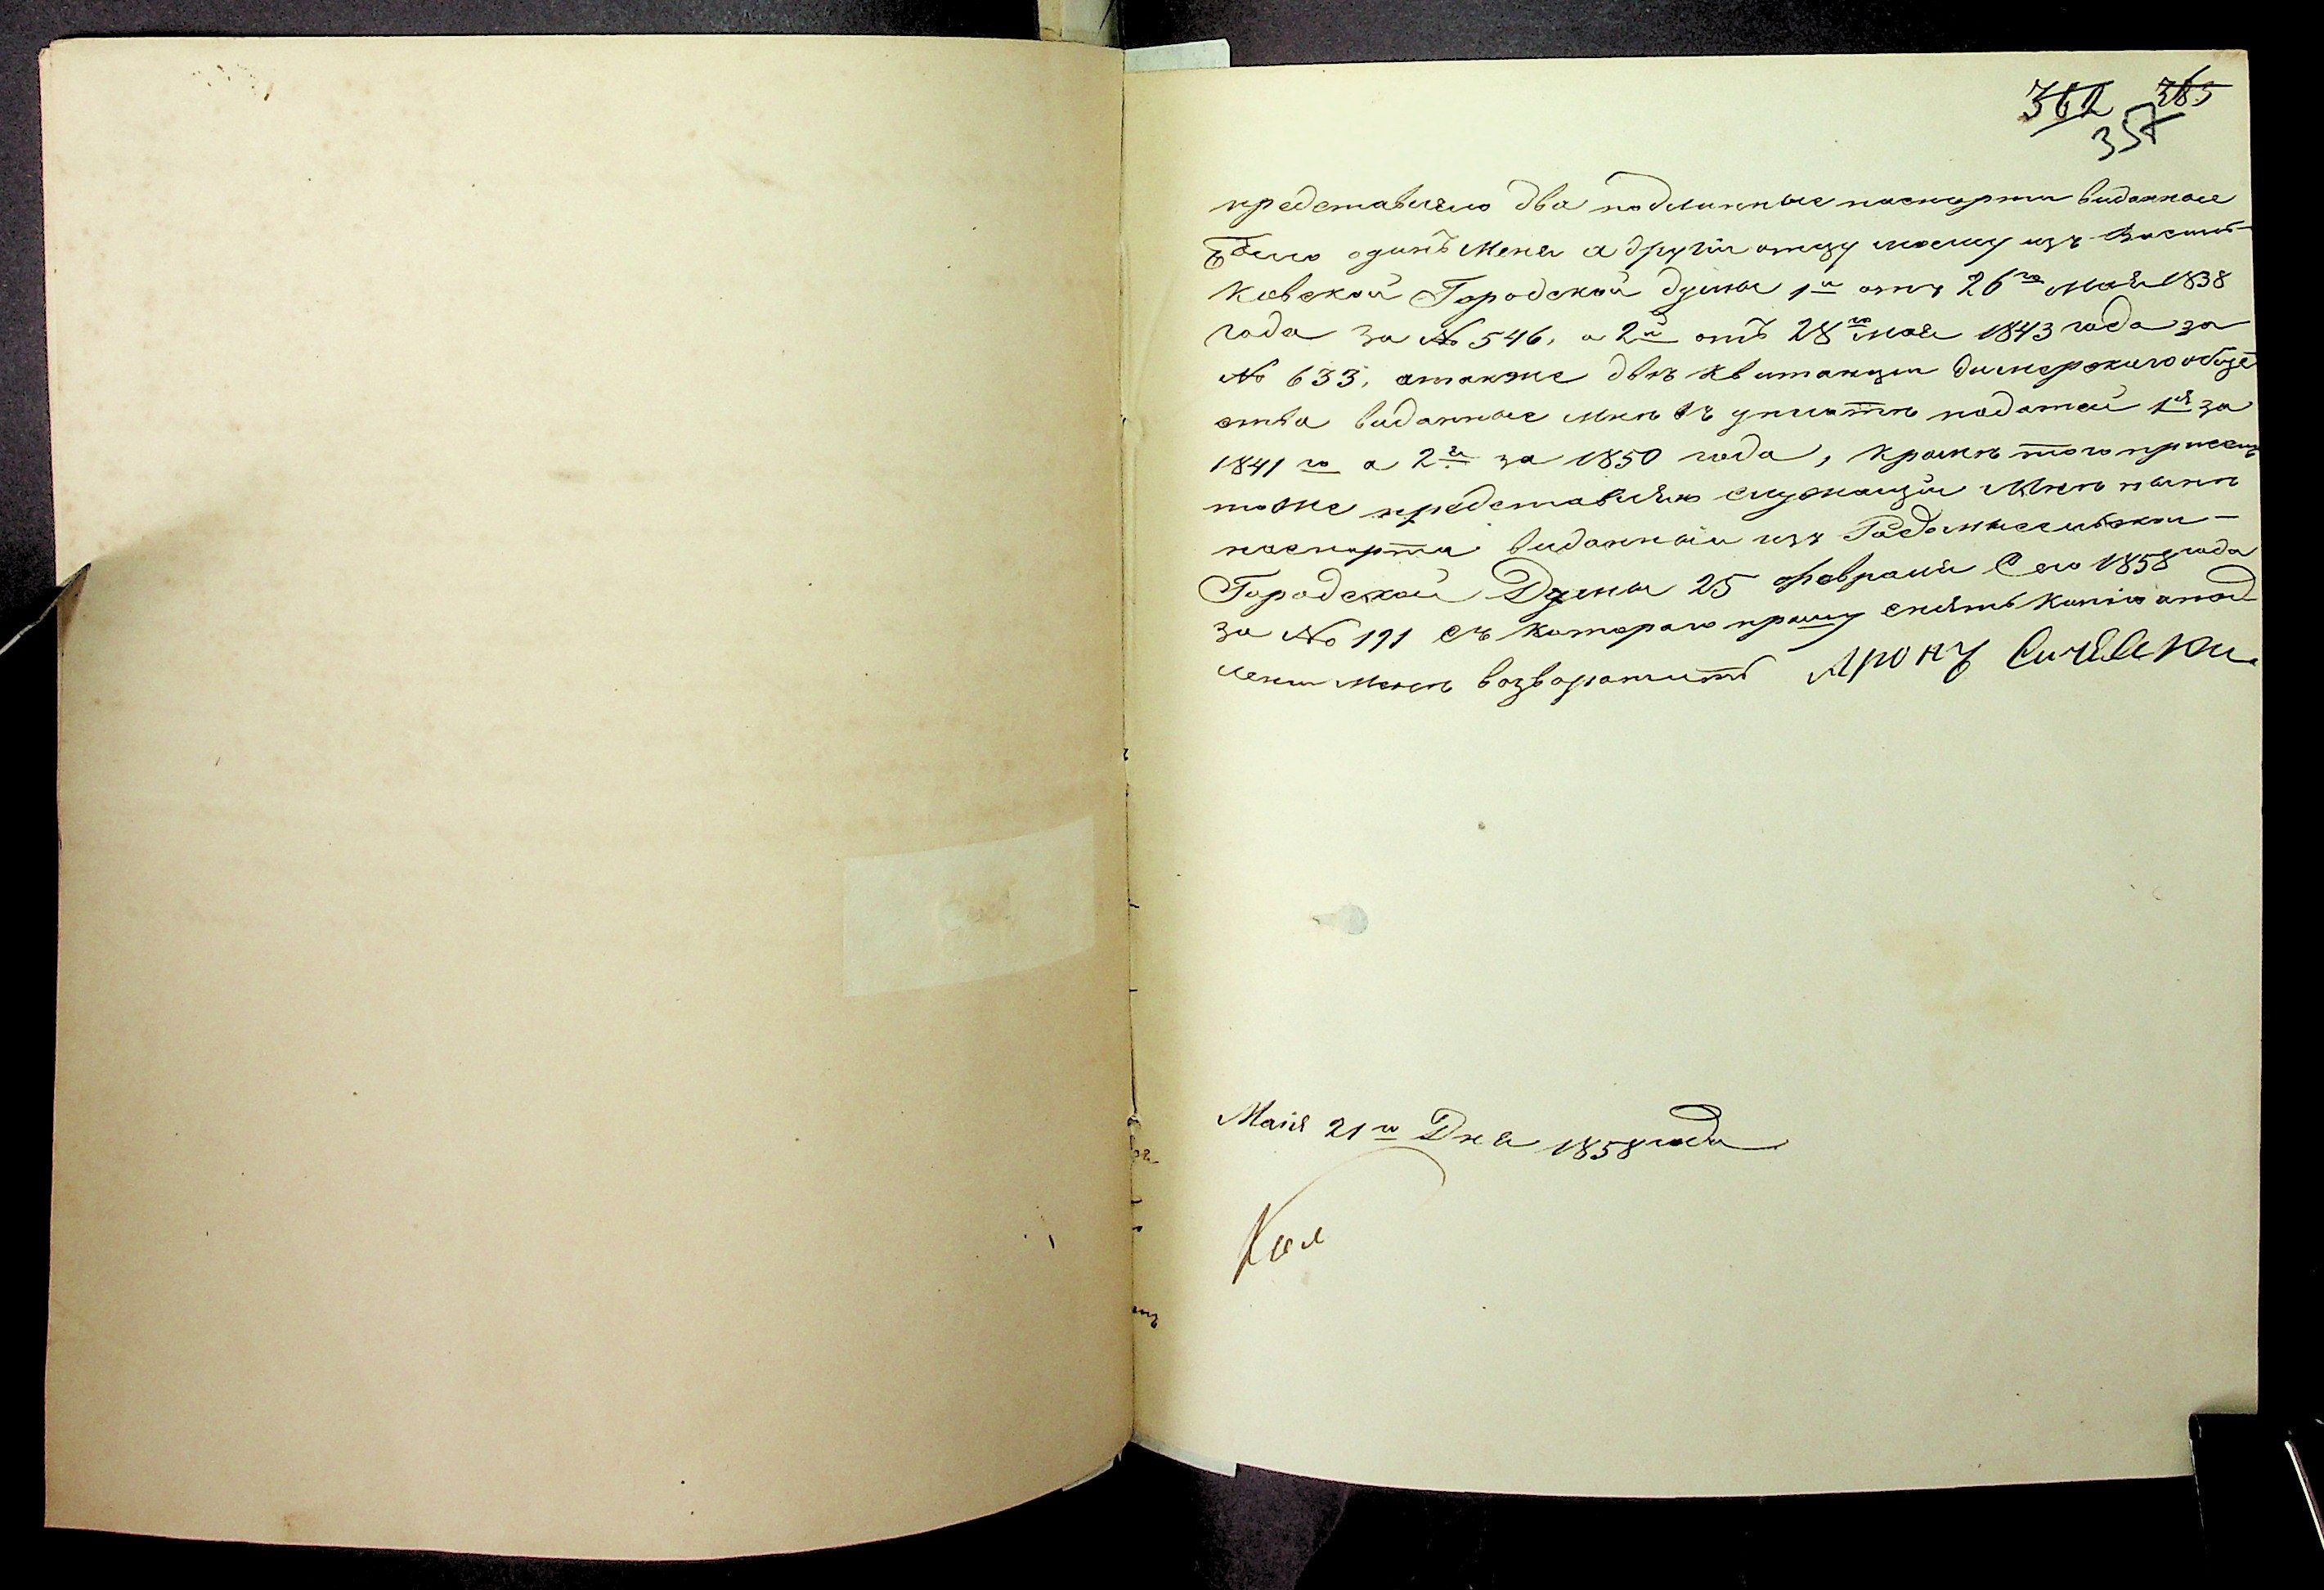 362 365
357
представляю два подлинные паспорти виданные
одинъ Меня а другій отцу моему изъ Василь-
ковской Городской Думы 1й отъ 26го Мая 1838
года за № 546, а 2й отъ 28го мая 1843 года за
№ 633, атакже двѣ квитанции Димерского обще
ства виданные мнѣ въ уплатѣ податей 1я за
1841го а 2я за 1850 года, кромѣ того присемъ
тоже представляю служащій Мнѣ нынѣ
паспортъ виданный изъ Радомысльской
Городской Думы 25 февраля Сего 1858 года
за № 191 съ котораго прошу снять копію апод
мнѣ возвратить Аронъ
Маія 21го Дня 1858 года